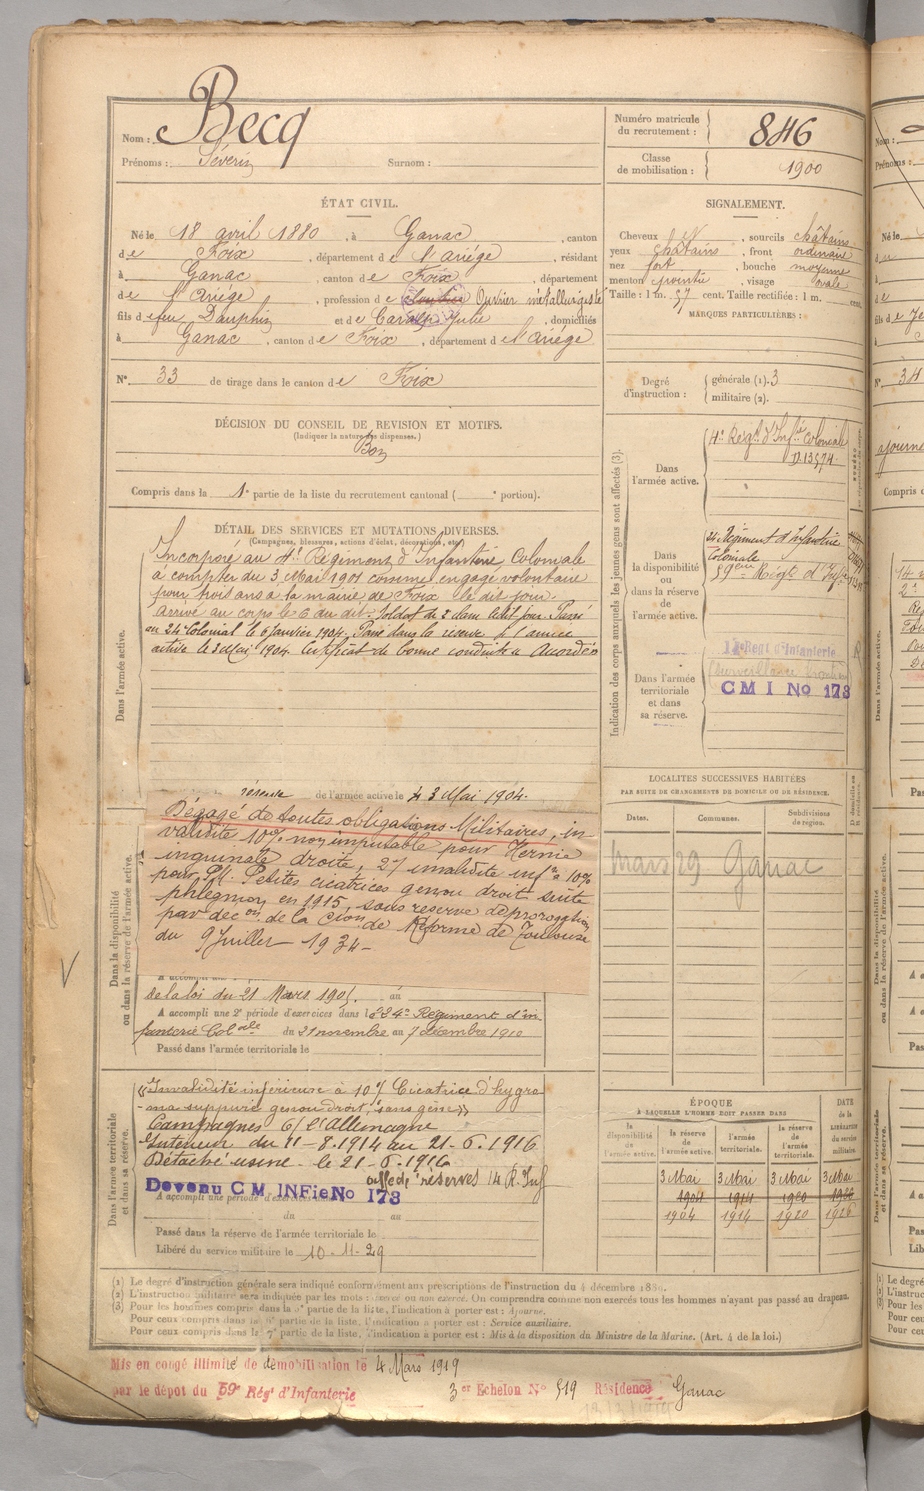 Nom : Becq
Prénoms : Séverin Surnom :
Numéro matricule
du recrutement : 846
Classe
de mobilisation : 1900
ÉTAT CIVIL.
Né le 18 avril 1880, à Ganac, canton
de Foix, département de l'Ariége, résidant
à Ganac, canton de Foix, département
de l'Ariége, profession de Ouvrier métallurgiste
fils de feu Dauphin et de Julie, domiciliés
à Ganac, canton de Foix, département de l'Ariége
N° 33 de tirage dans le canton de Foix
SIGNALEMENT.
Cheveux, sourcils châtains
yeux châtains, front ordinaire
nez fort, bouche moyenne
menton pointu, visage ovale
Taille : 1 m. 57 cent. Taille rectifiée : 1 m. cent.
MARQUES PARTICULIÈRES :
Degré
d'instruction :
générale (1). 3
militaire (2).
DÉCISION DU CONSEIL DE REVISION ET MOTIFS.
(Indiquer la nature des dispenses.)
Bon
Compris dans la 1e partie de la liste du recrutement cantonal ( e portion).
DÉTAIL DES SERVICES ET MUTATIONS DIVERSES.
(Campagnes, blessures, actions d'éclat, décorations, etc.)
Dans l'armée active.
Incorporé au 4e Régiment d'Infanterie Coloniale
à compter du 3 Mai 1901 comme engagé volontaire
pour trois ans à la mairie de Foix le dit jour.
arrivé au corps le 6 du dit. Soldat de 2e classe le dit jour. Passé
au 24e Colonial le 6 janvier 1904. Passé dans la réserve de l'armée
active le 3 Mai 1904. Certificat de bonne conduite Accordé
réserve de l'armée active le 3 Mai 1904.
Dans la disponibilité
ou dans la réserve de l'armée active.
Dégagé de toutes obligations Militaires, in-
validité 10% non imputable pour Hernie
inguinale droite, 2°/ invalidité infre à 10%
pour Petites cicatrices genou droit suite
phlegmon en 1915, sous réserve de prorogation
par décon de la Cion de Réforme de Toulouse
du 9 Juillet 1934-
de la loi du 21 Mars 1905. au
A accompli une 2e période d'exercices dans le 24e Régiment d'in-
fanterie Colale du 21 novembre au 7 décembre 1910
Passé dans l'armée territoriale le
Dans l'armée territoriale
et dans sa réserve.
"Invalidité inférieure à 10% Cicatrice d'hygro-
-ma suppuré genou droit, sans gêne"
Campagnes C/ l'Allemagne
Intérieur du 11-8-1914 au 21-6-1916
Détaché usine le 21-6-1916
Devenu C M INFie No 173
aff. de réserves 14 R. Inf
A accompli une période d'exercices
du au
Passé dans la réserve de l'armée territoriale le
Libéré du service militaire le 10-11-29
Indication des corps auxquels les jeunes gens sont affectés (3).
Dans
l'armée active.
4e Régt d'Infie Coloniale
D.13574.
Dans
la disponibilité
ou dans la réserve
de
l'armée active.
24 Régiment d'Infanterie
Coloniale
59eme Régt d'Inf
Dans l'armée
territoriale
et dans
sa réserve.
Regt d'Infanterie
C M I No 173
LOCALITÉS SUCCESSIVES HABITÉES
PAR SUITE DE CHANGEMENTS DE DOMICILE OU DE RÉSIDENCE.
Dates. Communes. Subdivisions de région.
Mars 29 Ganac
ÉPOQUE
À LAQUELLE L'HOMME DOIT PASSER DANS
DATE de la LIBÉRATION du service militaire.
la disponibilité de l'armée active.
la réserve de l'armée active.
l'armée territoriale.
la réserve de l'armée territoriale.
3 Mai 3 Mai 3 Mai 3 Mai
1904 1914 1920 1926
1904 1914 1920 1926
(1) Le degré d'instruction générale sera indiqué conformément aux prescriptions de l'instruction du 4 décembre 1889.
(2) L'instruction militaire sera indiquée par les mots : exercé ou non exercé. On comprendra comme non exercés tous les hommes n'ayant pas passé au drapeau.
(3) Pour les hommes compris dans la 2e partie de la liste, l'indication à porter est : Ajourné.
Pour ceux compris dans la partie de la liste, l'indication à porter est : Service auxiliaire.
Pour ceux compris dans la 7e partie de la liste, l'indication à porter est : Mis à la disposition du Ministre de la Marine. (Art. 4 de la loi.)
Mis en congé illimité de démobilisation le 4 Mars 1919
par le dépôt du 59e Régt d'Infanterie 3er Echelon No 519 Résidence Ganac